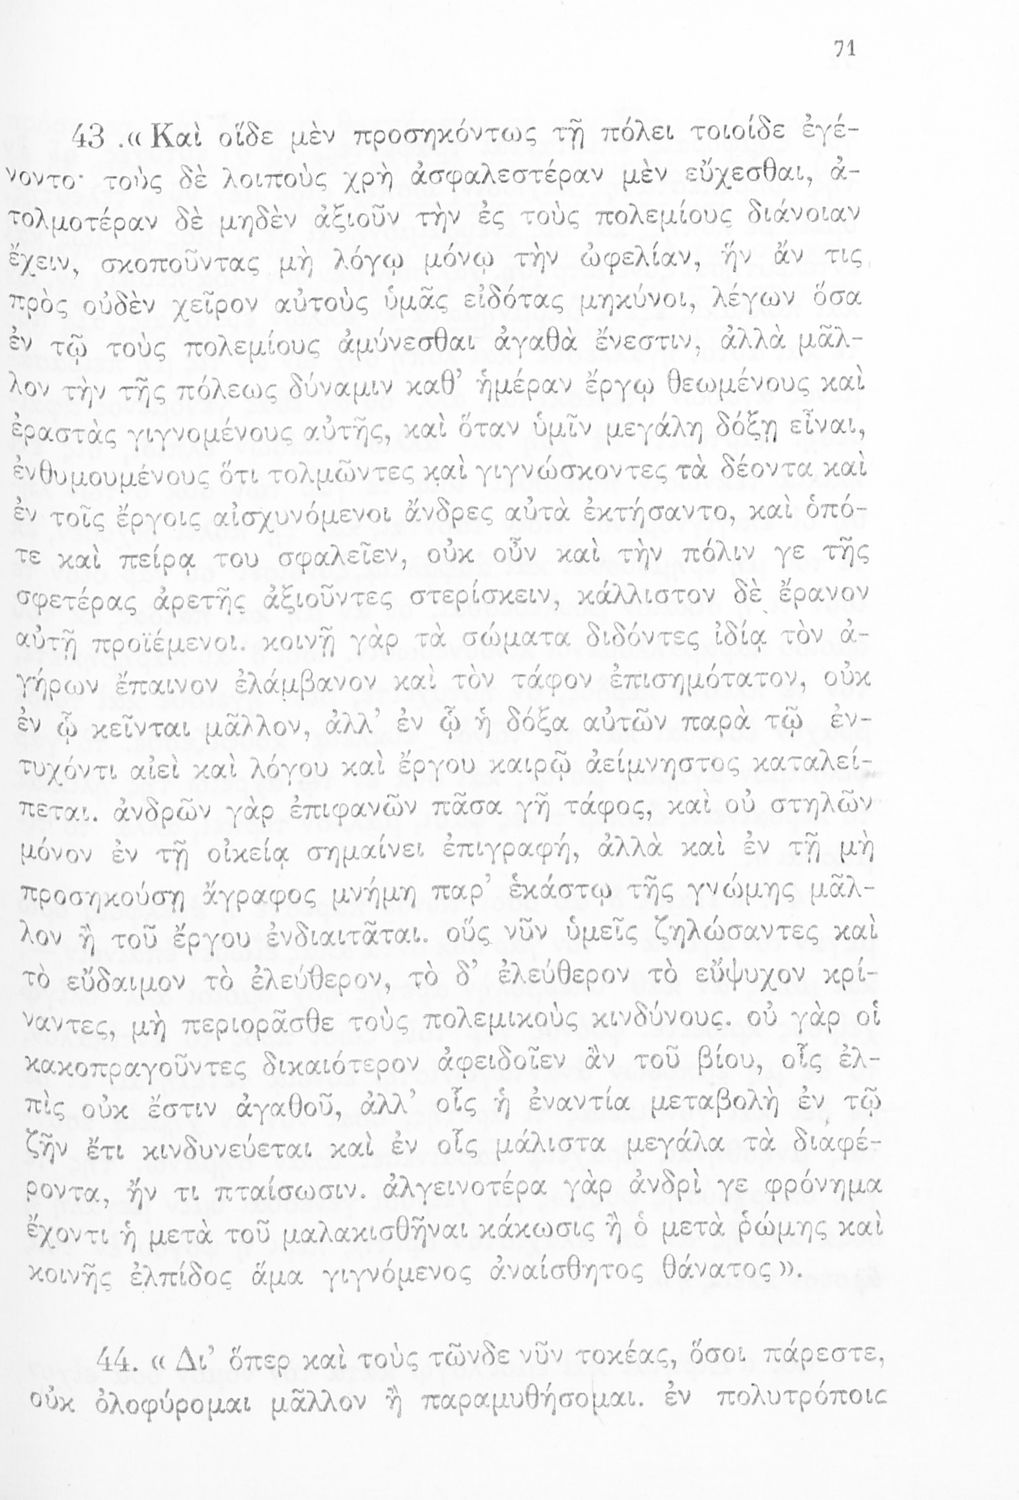 71
43 .« Καὶ οἵδε μὲν προσηκόντως τῇ πόλει τοιοίδε ἐγέ-
νοντο· τοὺς δὲ λοιποὺς χρὴ ἀσφαλεστέραν μὲν εὔχεσθαι, ἀ-
τολμοτέραν δὲ μηδὲν ἀξιοῦν τὴν ἐς τοὺς πολεμίους διάνοιαν
ἔχειν, σκοποῦντας μὴ λόγῳ μόνῳ τὴν ὠφελίαν, ἣν ἄν τις
πρὸς οὐδὲν χεῖρον αὐτοὺς ὑμᾶς εἰδότας μηκύνοι, λέγων ὅσα
ἐν τῷ τοὺς πολεμίους ἀμύνεσθαι ἀγαθὰ ἔνεστιν, ἀλλὰ μᾶλ-
λον τὴν τῆς πόλεως δύναμιν καθ’ ἡμέραν ἔργῳ θεωμένους καὶ
ἐραστὰς γιγνομένους αὐτῆς, καὶ ὅταν ὑμῖν μεγάλη δόξῃ εἶναι,
ἐνθυμουμένους ὅτι τολμῶντες καὶ γιγνώσκοντες τὰ δέοντα καὶ
ἐν τοῖς ἔργοις αἰσχυνόμενοι ἄνδρες αὐτὰ ἐκτήσαντο, καὶ ὁπό-
τε καὶ πείρᾳ του σφαλεῖεν, οὐκ οὖν καὶ τὴν πόλιν γε τῆς
σφετέρας ἀρετῆς ἀξιοῦντες στερίσκειν, κάλλιστον δὲ ἔρανον
αὐτῇ προϊέμενοι. κοινῇ γὰρ τὰ σώματα διδόντες ἰδίᾳ τὸν ἀ-
γήρων ἔπαινον ἐλάμβανον καὶ τὸν τάφον ἐπισημότατον, οὐκ
ἐν ᾧ κεῖνται μᾶλλον, ἀλλ’ ἐν ᾧ ἡ δόξα αὐτῶν παρὰ τῷ ἐν-
τυχόντι αἰεὶ καὶ λόγου καὶ ἔργου καιρῷ ἀείμνηστος καταλεί-
πεται. ἀνδρῶν γὰρ ἐπιφανῶν πᾶσα γῆ τάφος, καὶ οὐ στηλῶν
μόνον ἐν τῇ οἰκείᾳ σημαίνει ἐπιγραφή, ἀλλὰ καὶ ἐν τῇ μὴ
προσηκούσῃ ἄγραφος μνήμη παρ’ ἑκάστῳ τῆς γνώμης μᾶλ-
λον ἢ τοῦ ἔργου ἐνδιαιτᾶται. οὓς νῦν ὑμεῖς ζηλώσαντες καὶ
τὸ εὔδαιμον τὸ ἐλεύθερον, τὸ δ’ ἐλεύθερον τὸ εὔψυχον κρί-
ναντες, μὴ περιορᾶσθε τοὺς πολεμικοὺς κινδύνους. οὐ γὰρ οἱ
κακοπραγοῦντες δικαιότερον ἀφειδοῖεν ἂν τοῦ βίου, οἷς ἐλ-
πὶς οὐκ ἔστιν ἀγαθοῦ, ἀλλ’ οἷς ἡ ἐναντία μεταβολὴ ἐν τῷ
ζῆν ἔτι κινδυνεύεται καὶ ἐν οἷς μάλιστα μεγάλα τὰ διαφέ-
ροντα, ἤν τι πταίσωσιν. ἀλγεινοτέρα γὰρ ἀνδρὶ γε φρόνημα
ἔχοντι ἡ μετὰ τοῦ μαλακισθῆναι κάκωσις ἢ ὁ μετὰ ῥώμης καὶ
κοινῆς ἐλπίδος ἅμα γιγνόμενος ἀναίσθητος θάνατος».
44. « Δι’ ὅπερ καὶ τοὺς τῶνδε νῦν τοκέας, ὅσοι πάρεστε,
οὐκ ὀλοφύρομαι μᾶλλον ἢ παραμυθήσομαι. ἐν πολυτρόποις